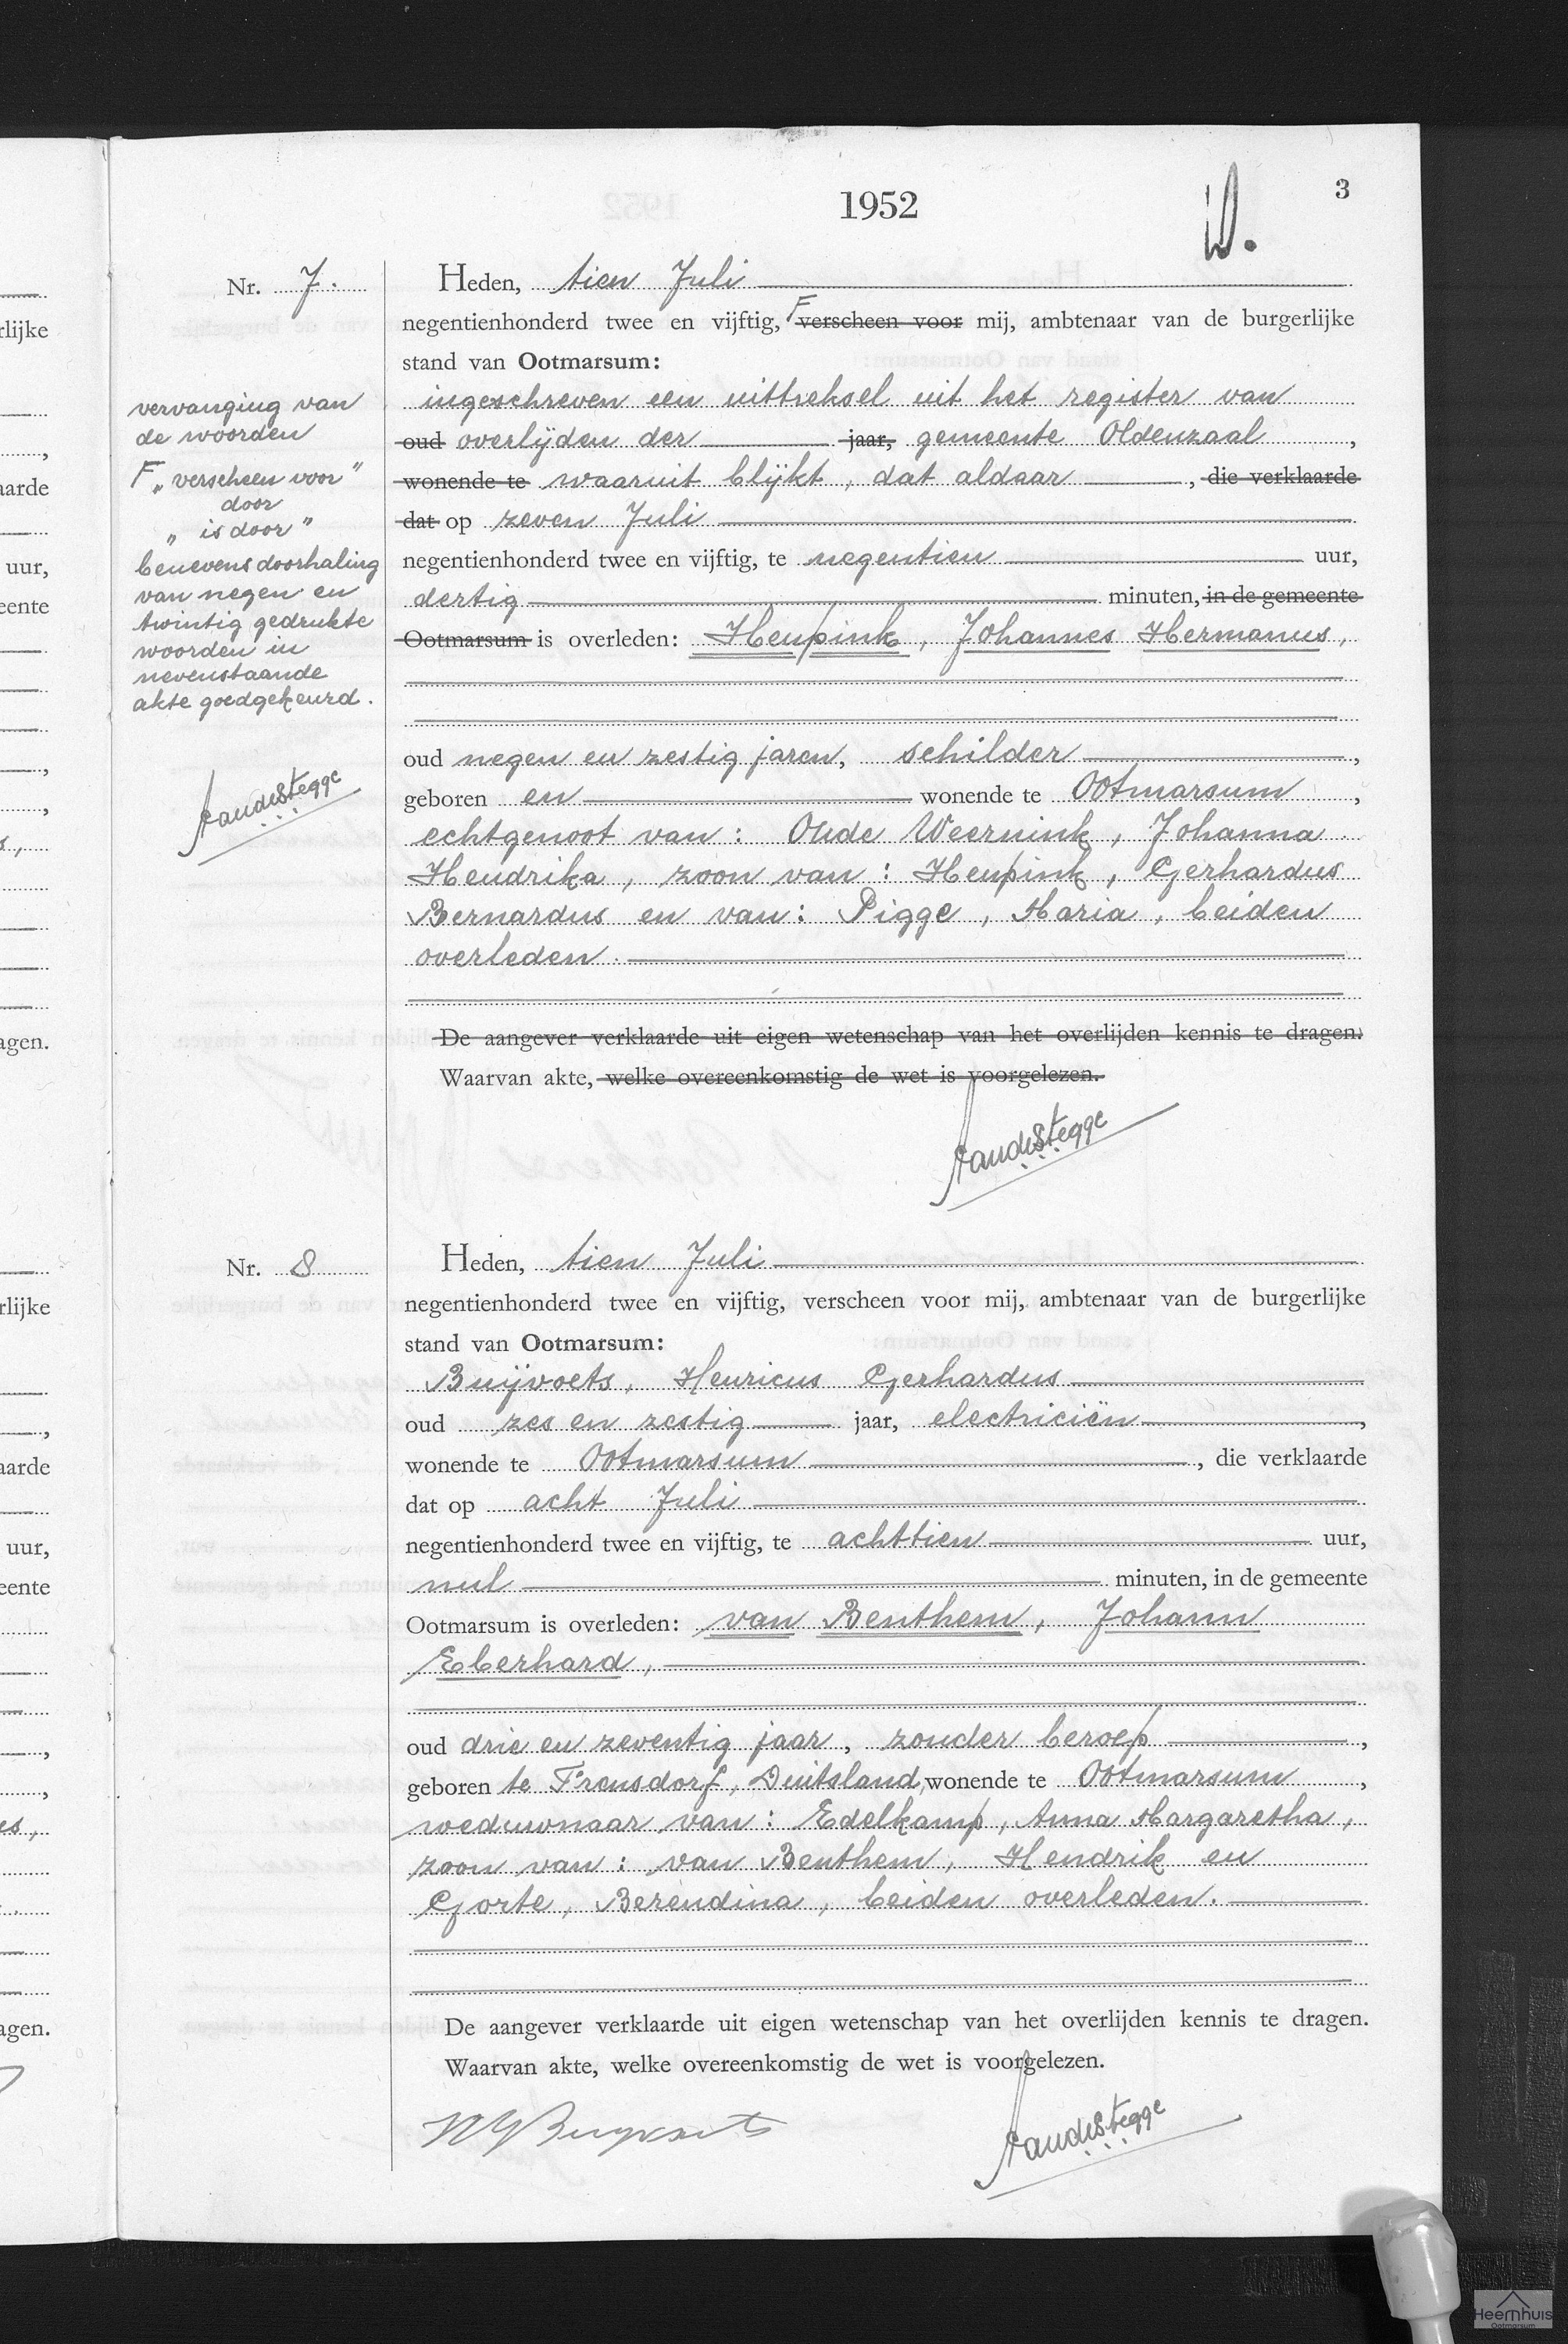 1952
3
Nr. 7.
Heden, tien Juli
negentienhonderd twee en vijftig, F verscheen voor mij, ambtenaar van de burgerlijke
stand van Ootmarsum:
ingeschreven een uittreksel uit het register van
oud overlijden der jaar, gemeente Oldenzaal,
wonende te waaruit blijkt, dat aldaar, die verklaarde
dat op zeven Juli
negentienhonderd twee en vijftig, te negentien uur,
dertig minuten, in de gemeente
Ootmarsum is overleden: Heupink, Johannes Hermanus,
oud negen en zestig jaren, schilder,
geboren en wonende te Ootmarsum,
echtgenoot van: Olde Weernink, Johanna
Hendrika, zoon van: Heupink, Gerhardus
Bernardus en van: Pigge, Maria, beiden
overleden.
De aangever verklaarde uit eigen wetenschap van het overlijden kennis te dragen.
Waarvan akte, welke overeenkomstig de wet is voorgelezen.
vervanging van
de woorden
F „verscheen voor"
door
„is door"
benevens doorhaling
van negen en
twintig gedrukte
woorden in
nevenstaande
akte goedgekeurd.
Nr. 8
Heden, tien Juli
negentienhonderd twee en vijftig, verscheen voor mij, ambtenaar van de burgerlijke
stand van Ootmarsum:
Buijvoets, Henricus Gerhardus
oud zes en zestig jaar, electriciën,
wonende te Ootmarsum, die verklaarde
dat op acht Juli
negentienhonderd twee en vijftig, te achttien uur,
nul minuten, in de gemeente
Ootmarsum is overleden: van Benthem, Johann
Eberhard,
oud drie en zeventig jaar, zonder beroep,
geboren te Frensdorf, Duitsland, wonende te Ootmarsum,
weduwnaar van: Edelkamp, Anna Margaretha,
zoon van: van Benthem, Hendrik en
Gorte, Berendina, beiden overleden.
De aangever verklaarde uit eigen wetenschap van het overlijden kennis te dragen.
Waarvan akte, welke overeenkomstig de wet is voorgelezen.
HGBuyvoets
rlijke
aarde
uur,
eente
agen.
rlijke
aarde
uur,
eente
agen.
Heemhuis
Ootmarsum